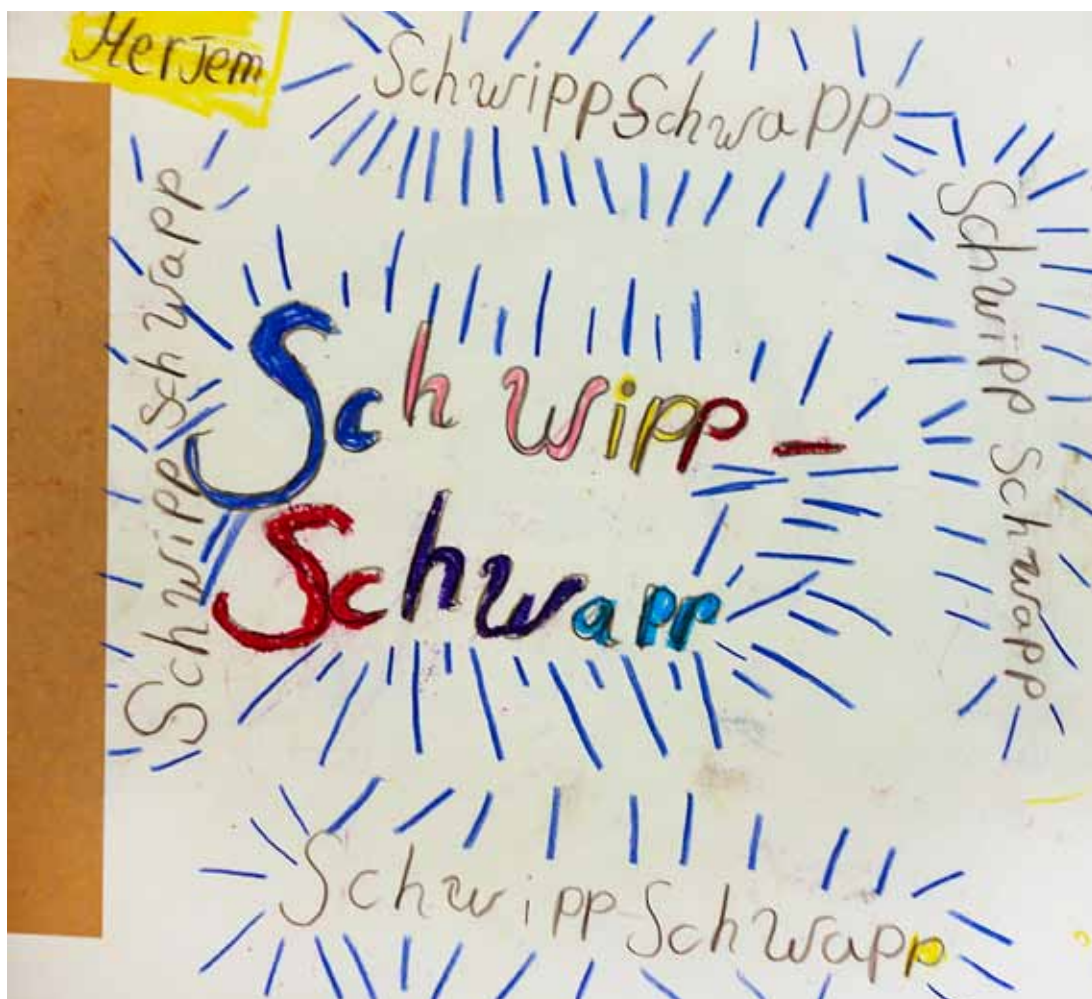 Merjem
SchwippSchwapp
Schwipp Schwapp
Schwipp-
Schwapp
Schwipp Schwapp
Schwipp Schwapp